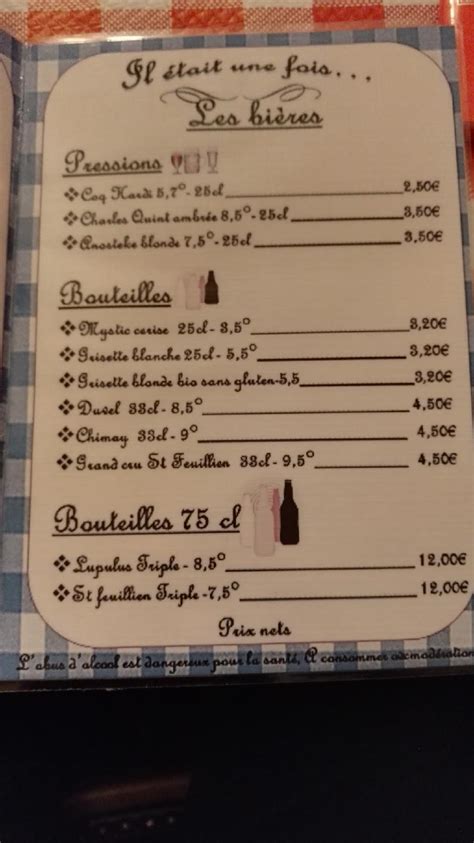 Il était une fois...
Les bières
Pressions
❖ Coq Hardi 5,7° - 25cl 2,50€
❖ Charles Quint ambrée 8,5° - 25cl 3,50€
❖ Anosteke blonde 7,5° - 25cl 3,50€
Bouteilles
❖ Mystic cerise 25cl - 3,5° 3,20€
❖ Grisette blanche 25cl - 5,5° 3,20€
❖ Grisette blonde bio sans gluten-5,5 3,20€
❖ Duvel 33cl - 8,5° 4,50€
❖ Chimay 33cl - 9° 4,50€
❖ Grand cru St Feuillien 33cl - 9,5° 4,50€
Bouteilles 75 cl
❖ Lupulus Triple - 8,5° 12,00€
❖ St feuillien Triple -7,5° 12,00€
Prix nets
L'abus d'alcool est dangereux pour la santé, A consommer avec modération